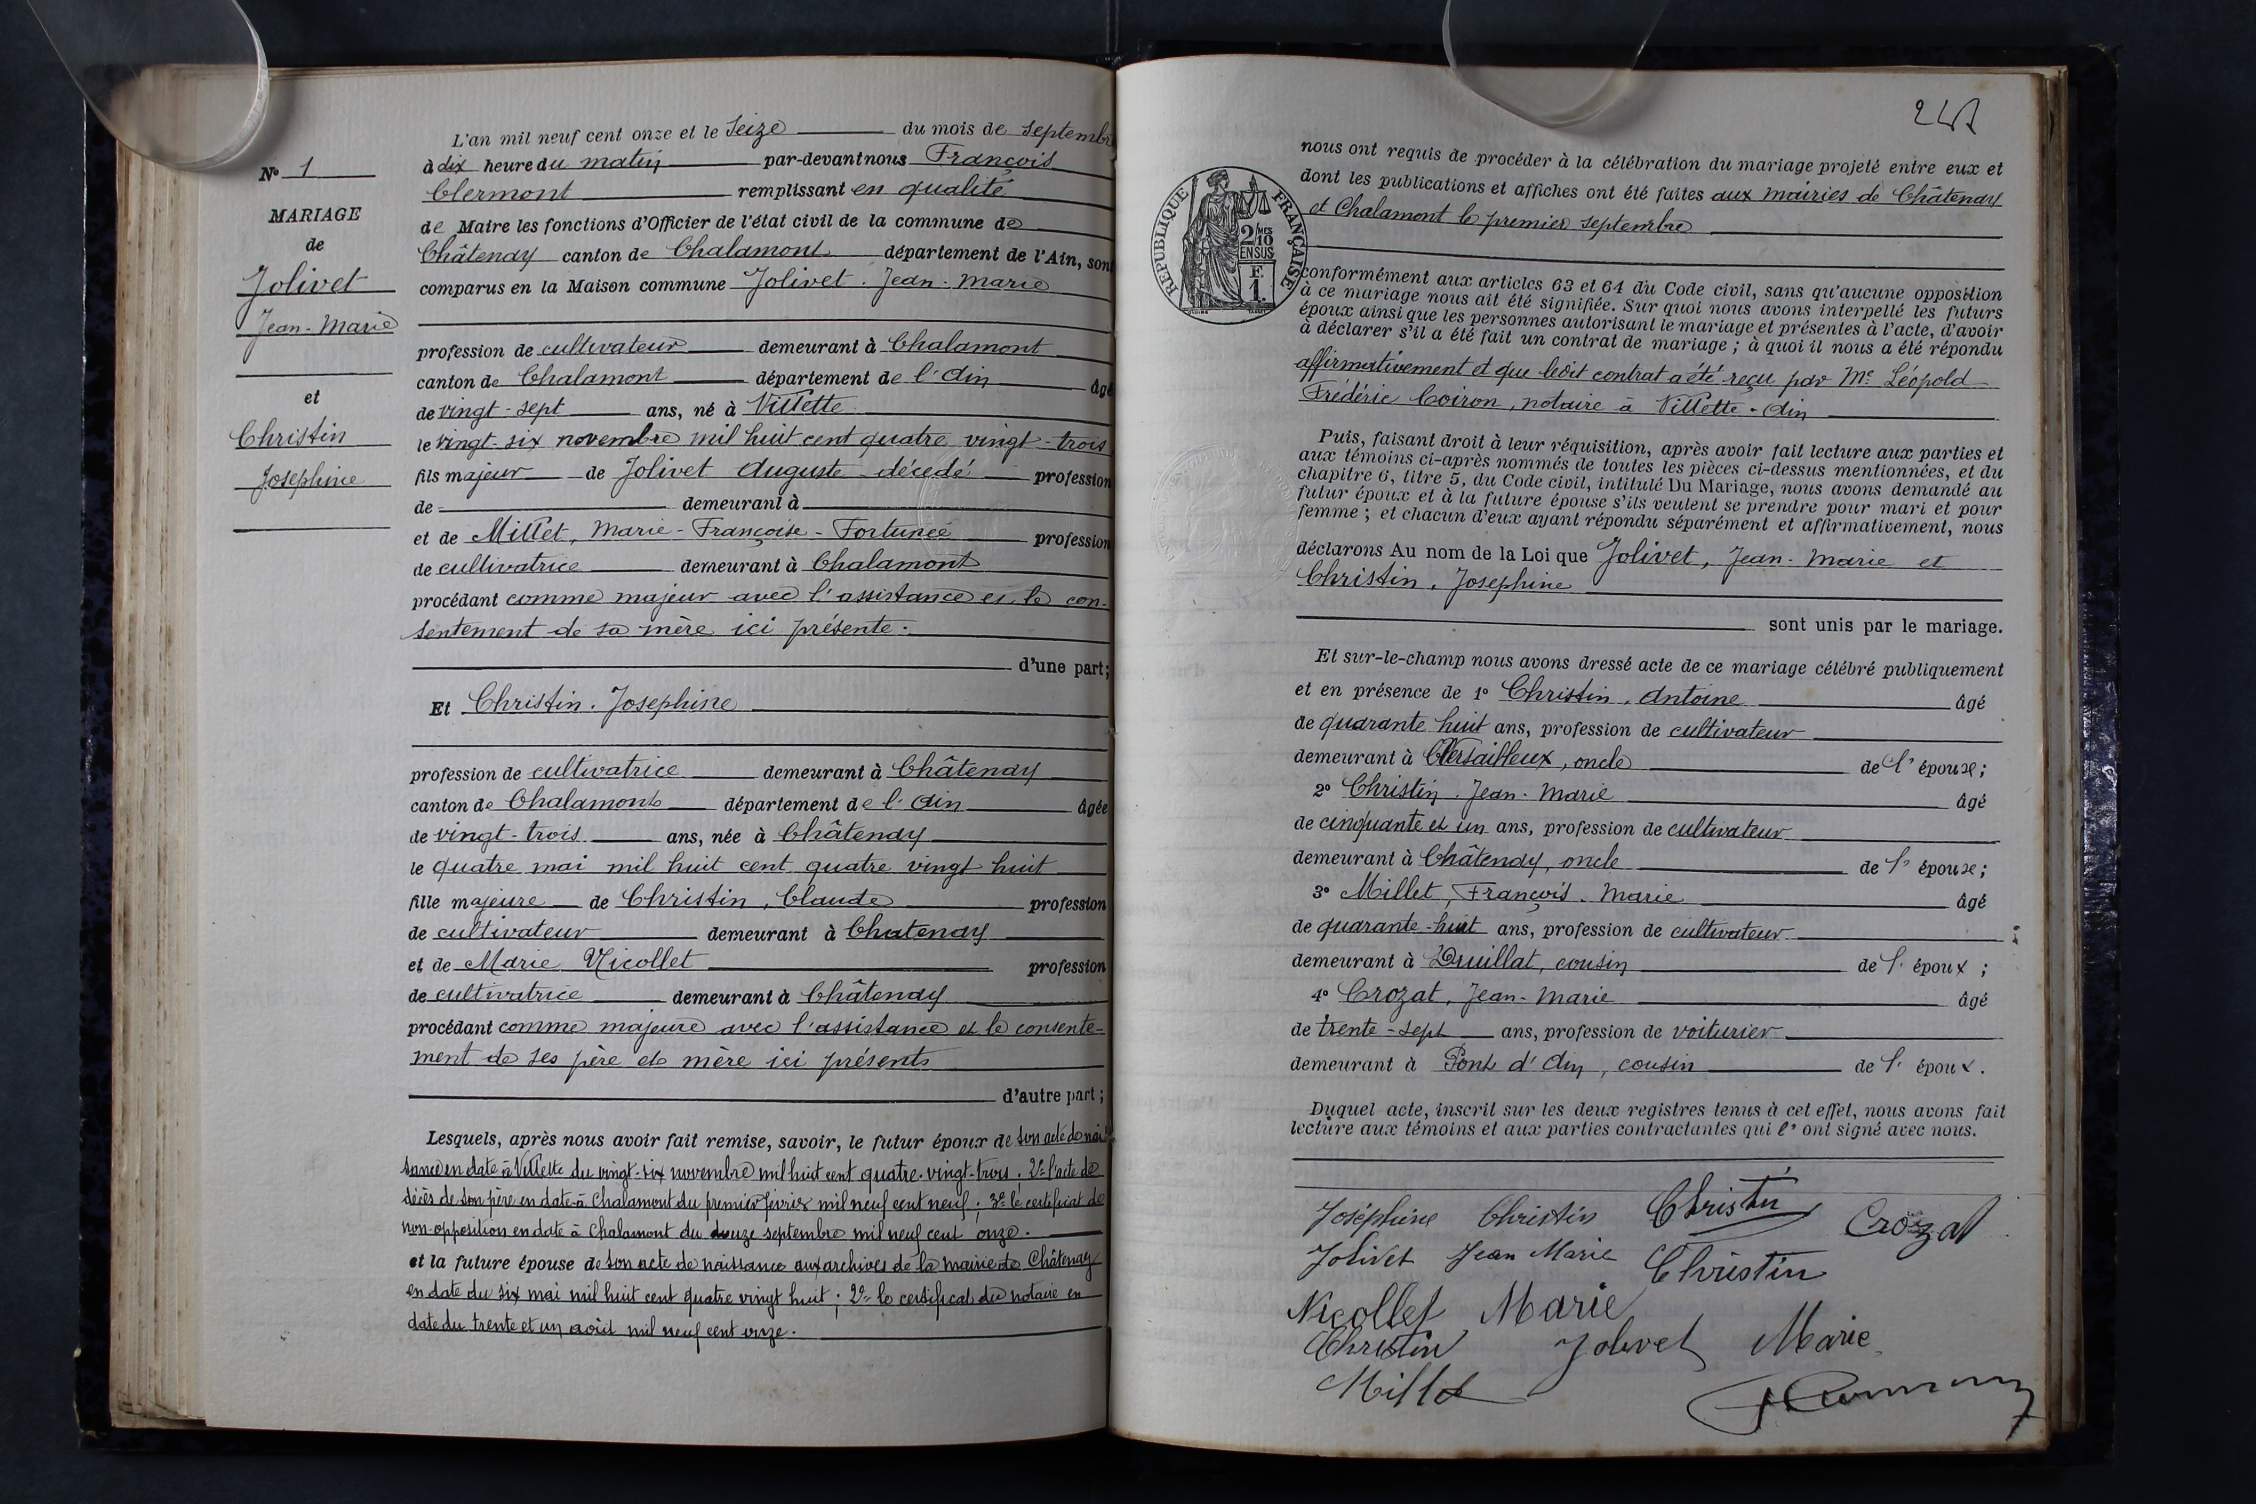 L'an mil neuf cent onze et le Seize du mois de septembre
N° 1
à dix heure du matin par-devant nous François
Clermont remplissant en qualité
MARIAGE
de Maire les fonctions d'Officier de l'état civil de la commune de
de
Châtenay canton de Chalamont département de l'Ain, sont
Jolivet
comparus en la Maison commune Jolivet. Jean-Marie
Jean-Marie
profession de cultivateur demeurant à Chalamont
canton de Chalamont département de l'Ain âgé
et
de vingt-sept ans, né à Villette
Christin
le vingt-six novembre mil huit cent quatre vingt-trois
Josephine
fils majeur de Jolivet Auguste décédé profession
de demeurant à
et de Millet, Marie-Françoise-Fortunée profession
de cultivatrice demeurant à Chalamont
procédant comme majeur avec l'assistance et le con-
sentement de sa mère ici présente.
d'une part;
Et Christin. Josephine
profession de cultivatrice demeurant à Châtenay
canton de Chalamont département de l'Ain âgée
de vingt-trois ans, née à Châtenay
le quatre mai mil huit cent quatre vingt huit
fille majeure de Christin, Claude profession
de cultivateur demeurant à Chatenay
et de Marie Nicollet profession
de cultivatrice demeurant à Châtenay
procédant comme majeure avec l'assistance et le consente-
ment de ses père et mère ici présents
d'autre part;
Lesquels, après nous avoir fait remise, savoir, le futur époux de son acte de nais
sance en date à Villette du vingt-six novembre mil huit cent quatre-vingt-trois; 2° l'acte de
décès de son père en date à Chalamont du premier février mil neuf cent neuf; 3° le certificat de
non-opposition en date à Chalamont du douze septembre mil neuf cent onze.
et la future épouse de son acte de naissance aux archives de la mairie de Châtenay
en date du six mai mil huit cent quatre vingt huit; 2° le certificat du notaire en
date du trente et un août mil neuf cent onze.
nous ont requis de procéder à la célébration du mariage projeté entre eux et
dont les publications et affiches ont été faites aux mairies de Châtenay
et Chalamont le premier septembre
RÉPUBLIQUE FRANÇAISE
2/10 MES
EN SUS
F.
1.
conformément aux articles 63 et 64 du Code civil, sans qu'aucune opposition
à ce mariage nous ait été signifiée. Sur quoi nous avons interpellé les futurs
époux ainsi que les personnes autorisant le mariage et présentes à l'acte, d'avoir
à déclarer s'il a été fait un contrat de mariage; à quoi il nous a été répondu
affirmativement et que ledit contrat a été reçu par Me Léopold
Frédéric Coiron, notaire à Villette-Ain
Puis, faisant droit à leur réquisition, après avoir fait lecture aux parties et
aux témoins ci-après nommés de toutes les pièces ci-dessus mentionnées, et du
chapitre 6, titre 5, du Code civil, intitulé Du Mariage, nous avons demandé au
futur époux et à la future épouse s'ils veulent se prendre pour mari et pour
femme; et chacun d'eux ayant répondu séparément et affirmativement, nous
déclarons Au nom de la Loi que Jolivet, Jean-Marie et
Christin. Josephine
sont unis par le mariage.
Et sur-le-champ nous avons dressé acte de ce mariage célébré publiquement
et en présence de 1° Christin, Antoine âgé
de quarante huit ans, profession de cultivateur
demeurant à Versailleux, oncle de l'épouse;
2° Christin. Jean-Marie âgé
de cinquante et un ans, profession de cultivateur
demeurant à Châtenay, oncle de l'épouse;
3° Millet, François-Marie âgé
de quarante-huit ans, profession de cultivateur
demeurant à Druillat, cousin de l'époux;
4° Crozat, Jean-Marie âgé
de trente-sept ans, profession de voiturier
demeurant à Pont d'Ain, cousin de l'époux.
Duquel acte, inscrit sur les deux registres tenus à cet effet, nous avons fait
lecture aux témoins et aux parties contractantes qui l'ont signé avec nous.
Joséphine Christin Christin Crozat
Jolivet Jean Marie Christin
Nicollet Marie
Christin Jolivet Marie
Millet